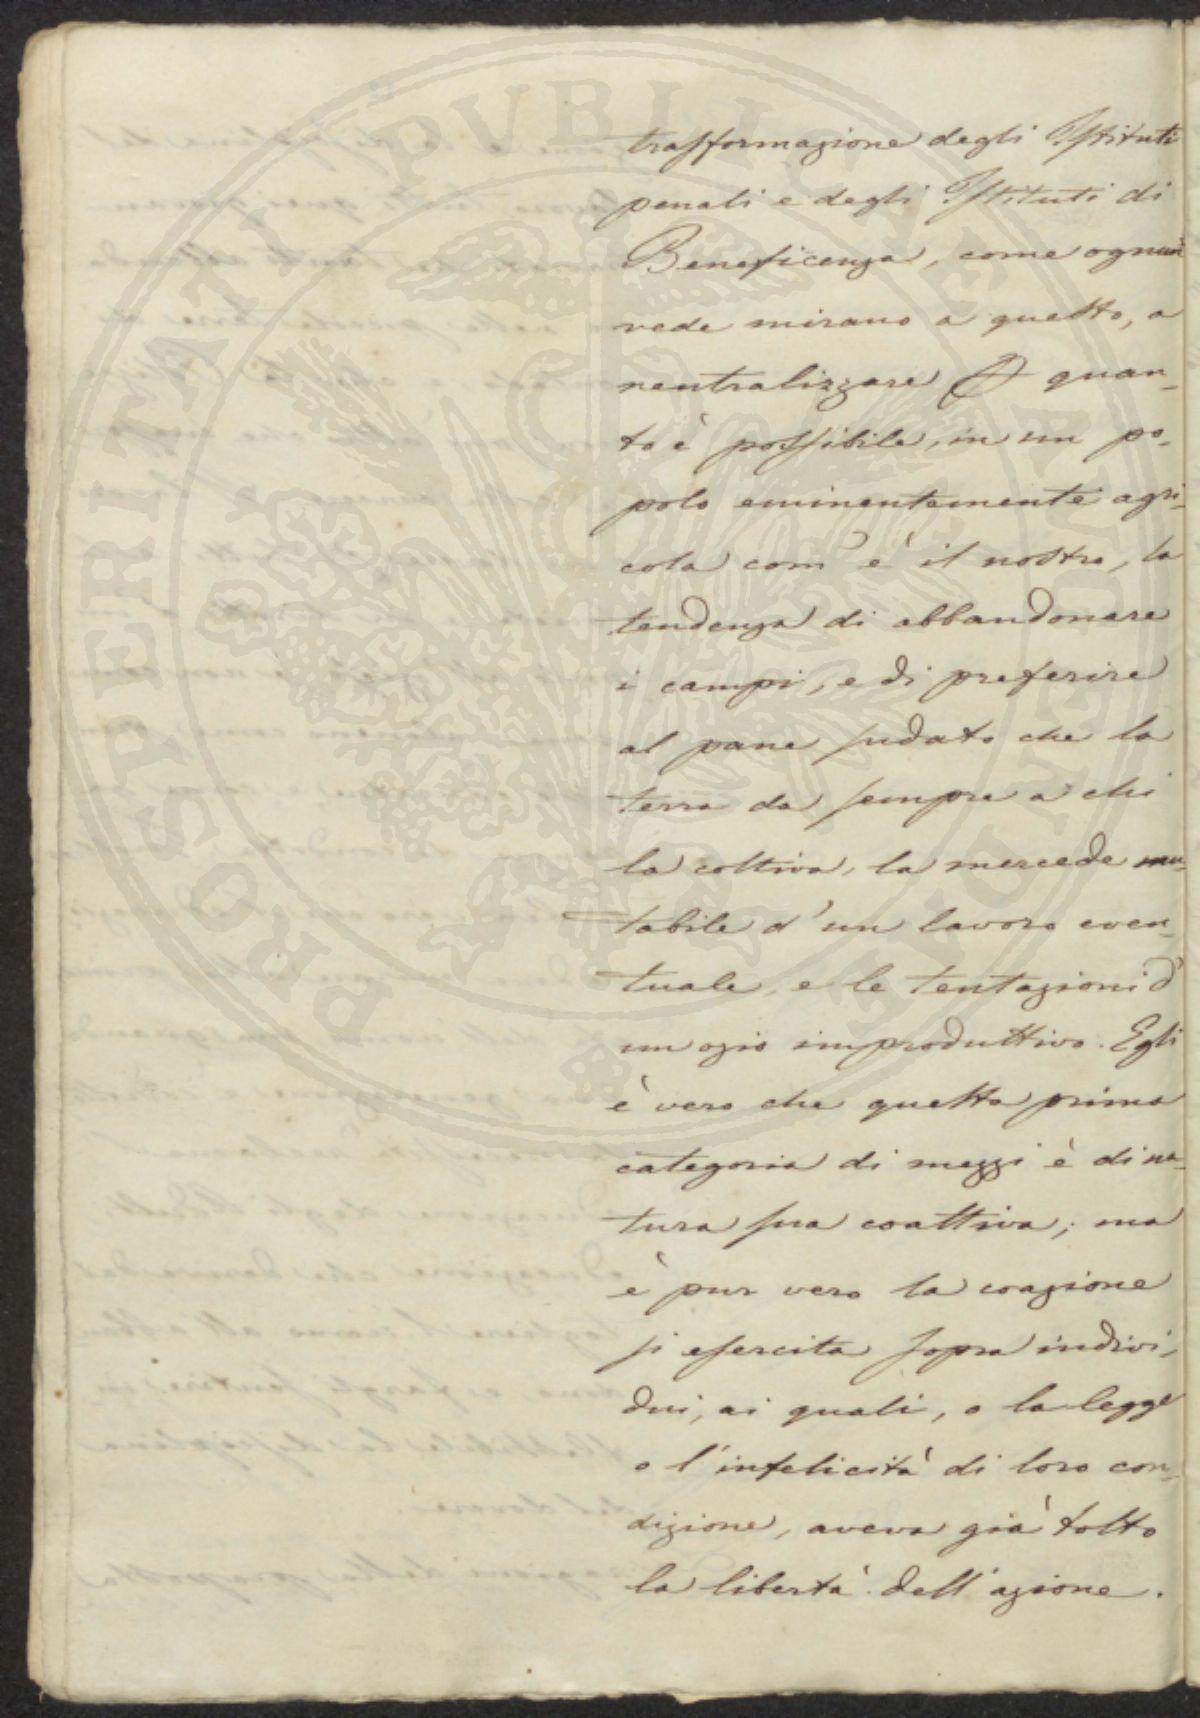 trasformazione degli Istituti
penali e degli Istituti di
Beneficenza, come ognun
vede mirano a questo, a
neutralizzare quan-
to è possibile, in un po-
polo eminentemente agri-
cola com'è il nostro, la
tendenza di abbandonare
i campi, e di preferire
al pane sudato che la
terra da sempre a chi
la coltiva, la mercede mu-
tabile d'un lavoro even-
tuale, e le tentazioni d'
un ozio improduttivo. Egli
è vero che questa prima
categoria di mezzi è di na-
tura sua coattiva; ma
è pur vero la coazione
si esercita sopra indivi-
dui, ai quali, o la legge
o l'infelicità di loro con-
dizione, aveva già tolto
la libertà dell'azione.
PROSPERITATI PVBLICAE AVGENDAE